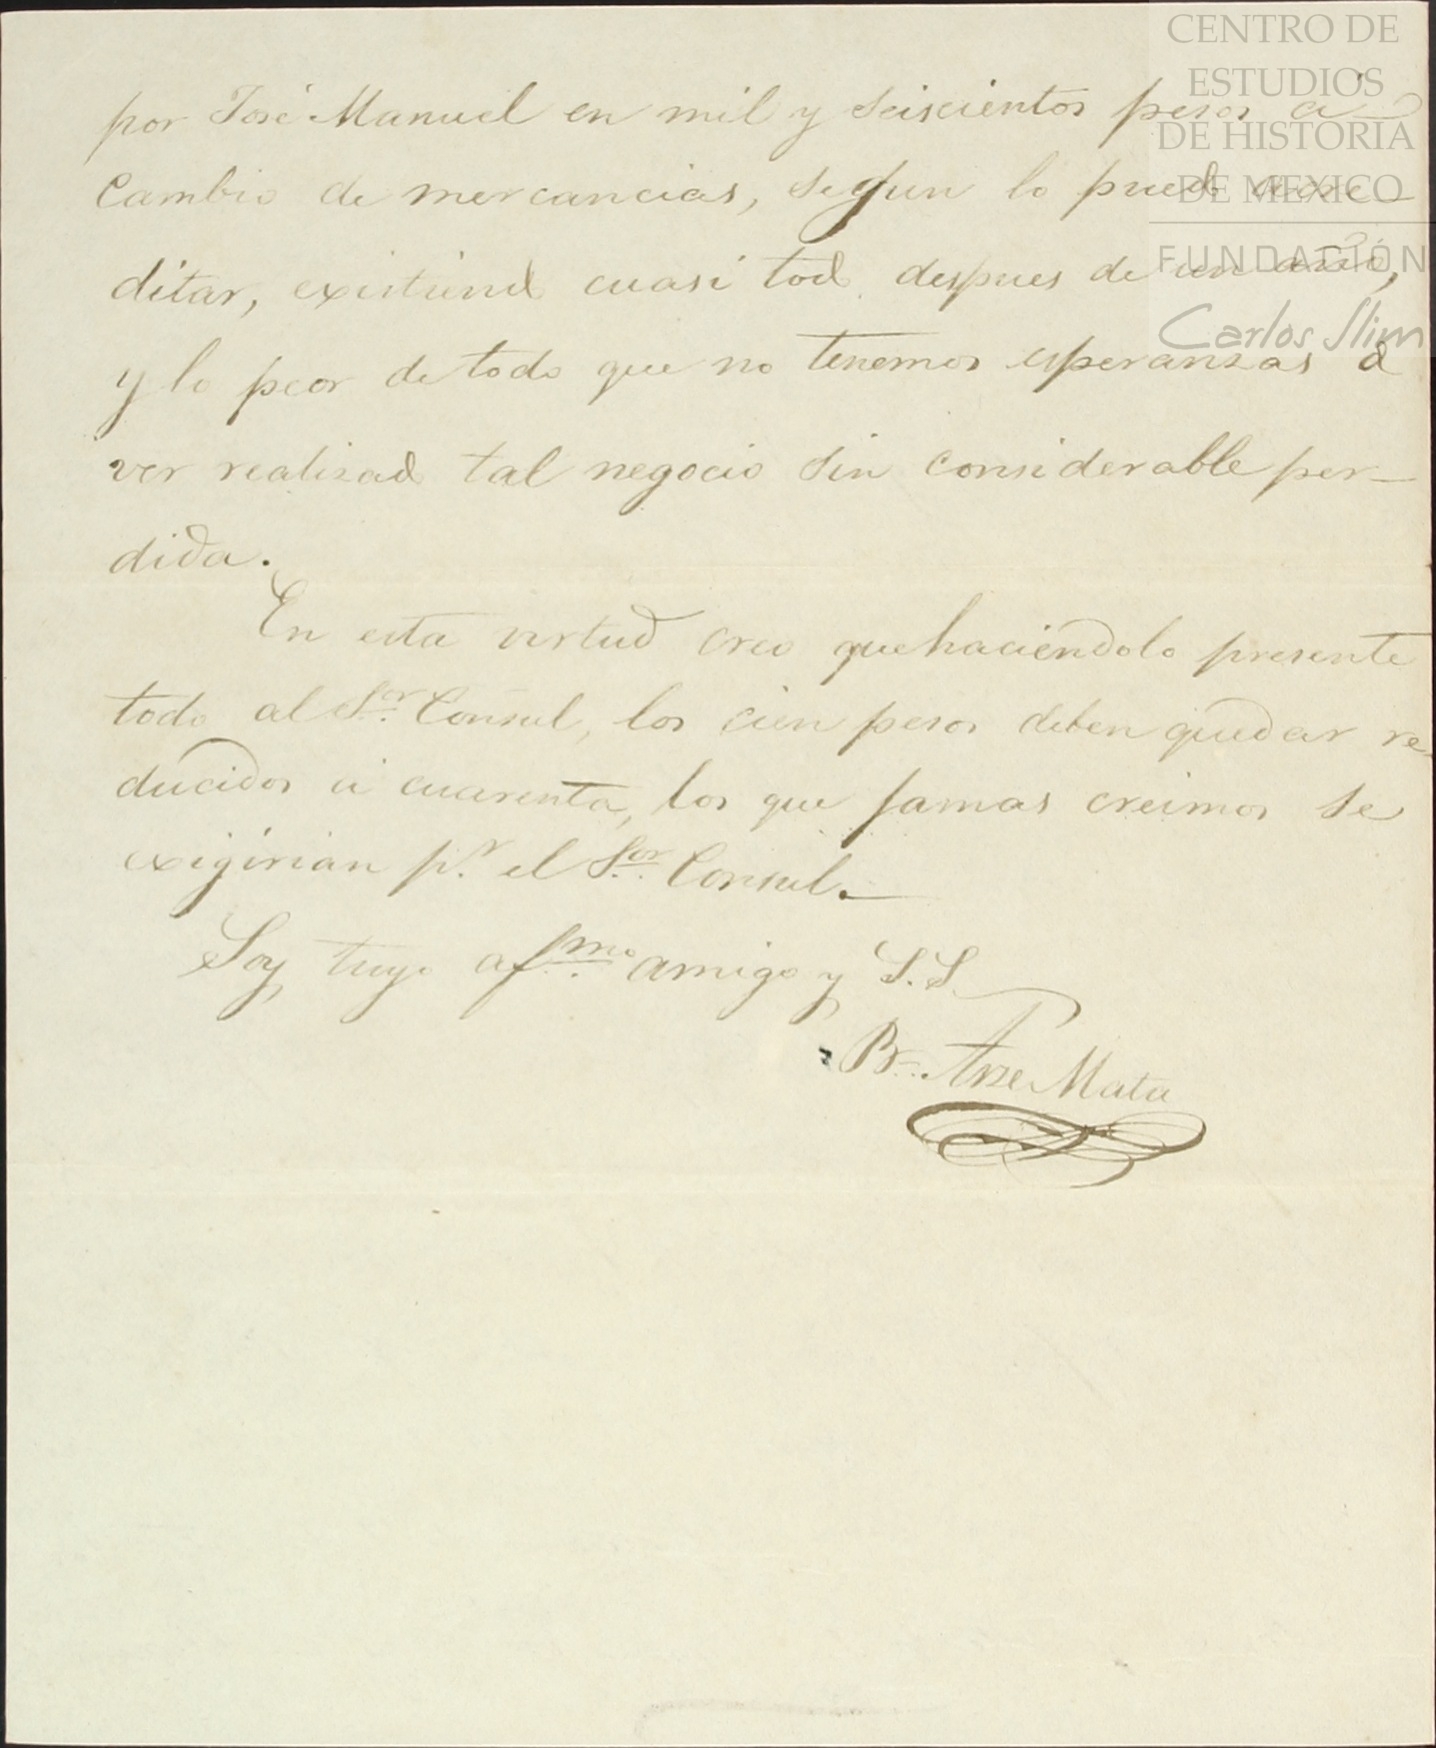 CENTRO DE
ESTUDIOS
DE HISTORIA
DE MEXICO
FUNDACIÓN
Carlos Slim
por José Manuel en mil y seiscientos pesos á
Cambio de mercancias, segun lo puedo acre
ditar, existiendo cuasi todo despues de un año,
y lo peor de todo que no tenemos esperanzas de
ver realisado tal negocio sin considerable per-
dida.
En esta virtud creo que haciendolo presente
todo al Sor. Consul, los cien pesos deben quedar re
ducidos á cuarenta, los que jamas creimos se
exigirian pr. el Sor. Consul.
Soy tuyo afmo. amigo y S.S.
Br. Arze Mata